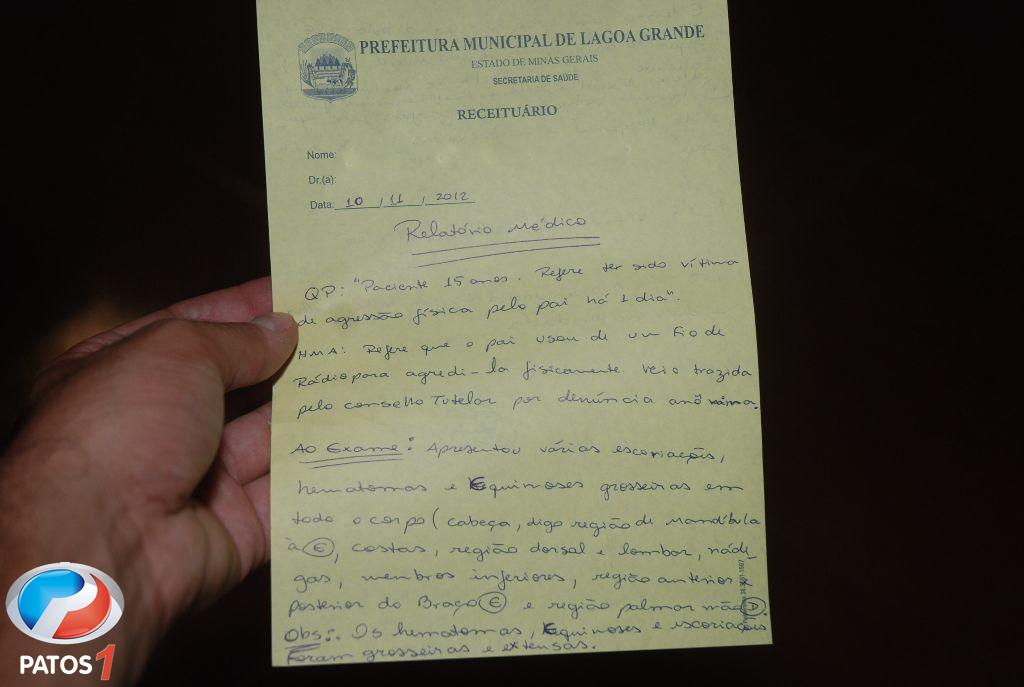 PREFEITURA MUNICIPAL DE LAGOA GRANDE
ESTADO DE MINAS GERAIS
SECRETARIA DE SAÚDE
RECEITUÁRIO
Nome:
Dr.(a):
Data: 10 / 11 / 2012
Relatório Médico
QP: "Paciente 15 anos. Refere ter sido vítima
de agressão física pelo pai há 1 dia".
HMA: Refere que o pai usou de um Fio de
Rádio para agredi-la fisicamente. Veio trazida
pelo conselho Tutelar por denúncia anônima.
Ao Exame: Apresentou várias escoriações,
hematomas e Equimoses grosseiras em
todo o corpo (cabeça, digo região de Mandíbula
à (E), costas, região dorsal e lombar, náde-
gas, membros inferiores, região anterior e
posterior do Braço (E) e região palmar mão
Obs:. Os hematomas, Equimoses e escoriações
Foram grosseiras e extensas.
PATOS 1